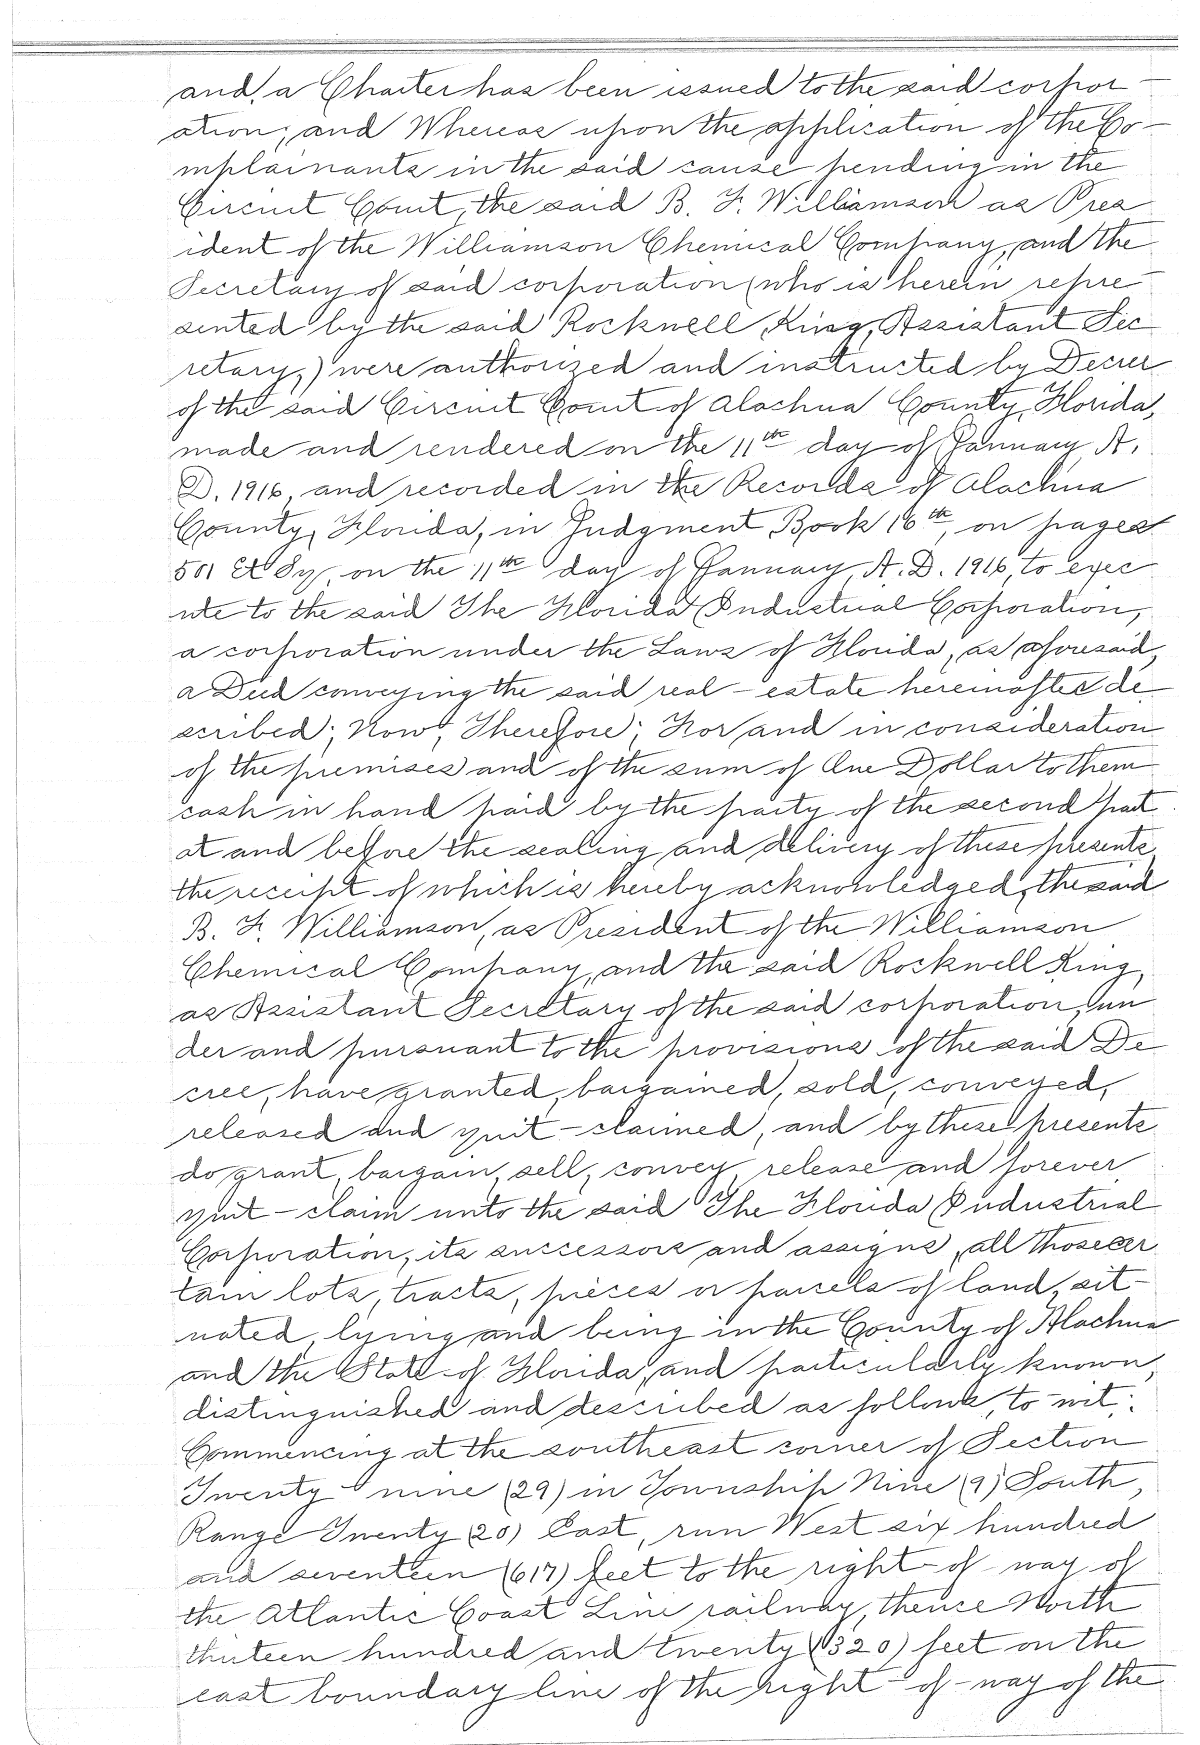 and, a Charter has been issued to the said corpor-
ation; and Whereas upon the application of the Co-
mplainants in the said cause pending in the
Circuit Court, the said B. F. Williamson as Pres
ident of the Williamson Chemical Company, and the
Secretary of said corporation (who is herein repre-
sented by the said Rockwell King, Assistant Sec
retary,) were authorized and instructed by Decree
of the said Circuit Court of Alachua County, Florida,
made and rendered on the 11th day of January A.
D. 1916, and recorded in the Records of Alachua
County, Florida, in Judgment Book 16th, on pages
501 Et Sq, on the 11th day of January, A. D. 1916, to exec
ute to the said The Florida Industrial Corporation,
a corporation under the Laws of Florida, as aforesaid,
a Deed conveying the said real-estate hereinafter de
scribed; Now, Therefore; For and in consideration
of the premises and of the sum of One Dollar to them
cash in hand paid by the party of the second part
at and before the sealing and delivery of these presents,
the receipt of which is hereby acknowledged, the said
B. F. Williamson, as President of the Williamson
Chemical Company, and the said Rockwell King,
as Assistant Secretary of the said corporation, un
der and pursuant to the provisions of the said De
cree, have granted, bargained, sold, conveyed,
released and quit-claimed, and by these presents
do grant, bargain, sell, convey, release and forever
quit-claim unto the said The Florida Industrial
Corporation, its successors and assigns, all those cer
tain lots, tracts, pieces or parcels of land, sit-
uated, lying and being in the County of Alachua
and the State of Florida, and particularly known,
distinguished and described as follows, to-wit:
Commencing at the southeast corner of Section
Twenty-nine (29) in Township Nine (9) South,
Range Twenty (20) East, run West six hundred
and seventeen (617) feet to the right-of-way of
the Atlantic Coast Line railway, thence North
thirteen hundred and twenty (1320) feet on the
east boundary line of the right-of-way of the